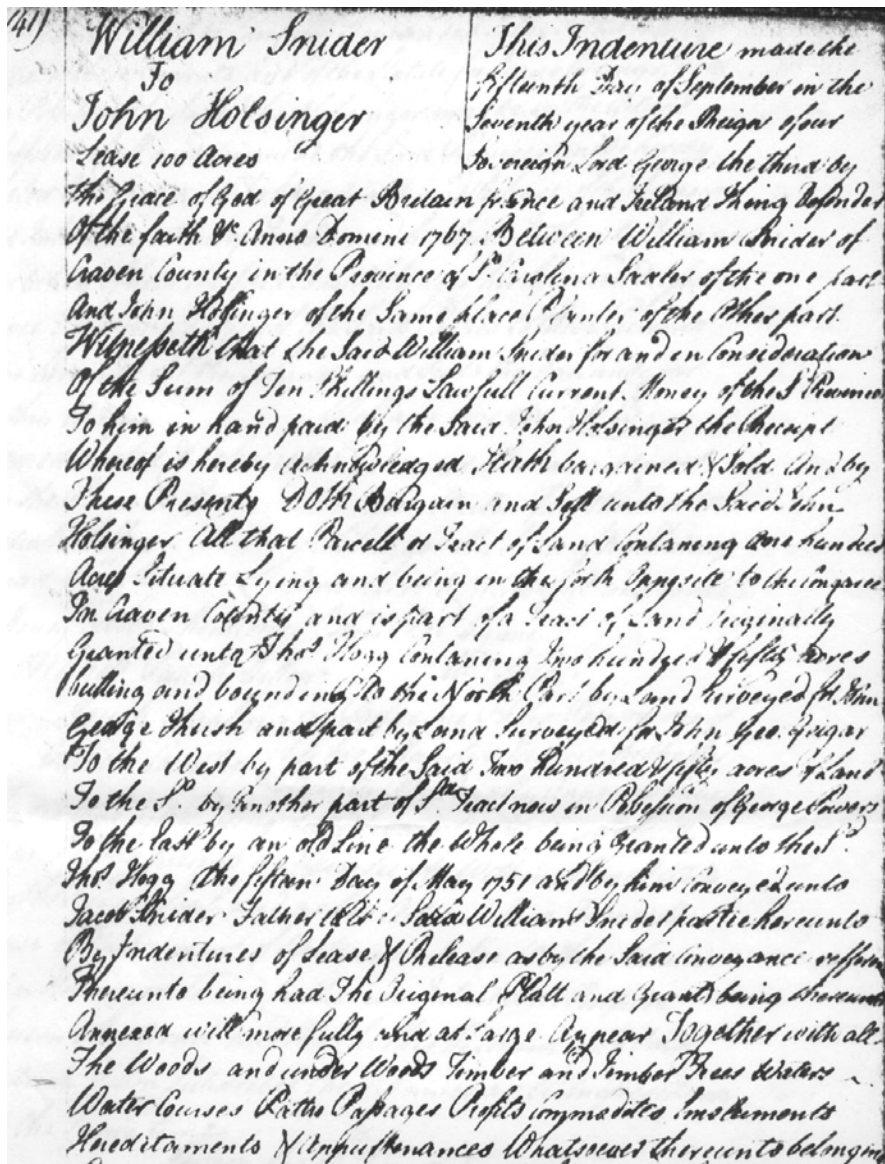 41)
William Snider
To
John Holsinger
Lease 100 Acres
This Indenture made the
fifteenth Day of September in the
Seventh year of the Reign of our
Sovereign Lord George the third by
the Grace of God of Great Britain france and Ireland King Defender
Of the faith &c Anno Domini 1767. Between William Snider of
Craven County in the Province of So Carolina of the one part
And John Holsinger of the Same place Planter of the Other part.
Witnesseth that the Said William Snider for and in Consideration
Of the Sum of Ten Shillings Lawfull Current Money of the Sd Province
To him in hand paid by the Said John Holsinger the Receipt
Whereof is hereby Acknowledged Hath bargained & Sold And by
These Presents Doth Bargain and Sell unto the Said John
Holsinger All that Parcell or Tract of Land Contaning One hundred
Acres Situate Lying and being in the to the Congaree
In Craven County and is part of a Tract of Land Originally
Granted unto Thos Hogg Contaning Two hundred & fifty Acres
butting and bounding To the North East by Land Surveyed for John
George and part by Land Surveyed for John Geo.
To the West by part of the Said Two Hundred & fifty acres of Land
To the So by another part of Sd Tract now in Possession of George Powers
To the East by an old Line the Whole being Granted unto the Sd
Thos Hogg the Day of May 1751 and by him Conveyed unto
Jacob Snider Father to Said William Snider partie hereunto
By Indentures of Lease & Release as by the Said Conveyance
Thereunto being had The Original Platt and Grant being thereunto
Annexed will more fully and at Large Appear Together with all
The Woods and under Woods Timber and Timber Trees Waters
Water Courses Paths Passages Profits
Hereditaments & Appurtenances Whatsoever thereunto belonging